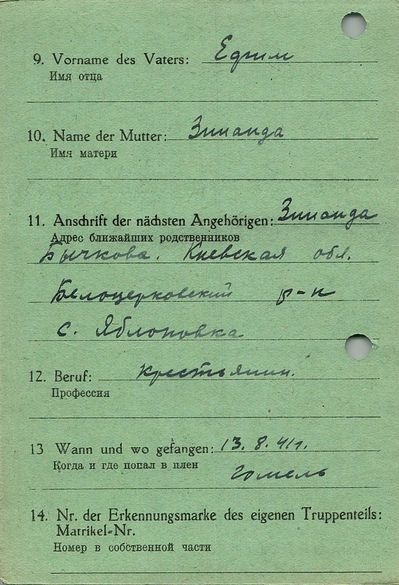 9. Vorname des Vaters: Ефим
Имя отца
10. Name der Mutter: Зинаида
Имя матери
11. Anschrift der nächsten Angehörigen: Зинаида
Адрес ближайших родственников
Бычкова. Киевская обл.
Белоцерковский р-н
с. Яблоновка
12. Beruf: крестьянин.
Профессия
13 Wann und wo gefangen: 13.8.41г.
Когда и где попал в плен
Гомель
14. Nr. der Erkennungsmarke des eigenen Truppenteils:
Matrikel-Nr.
Номер в собственной части